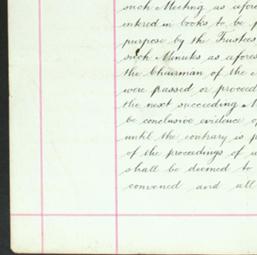 such Meeting as afore
entered in books to be
purpose by the Trustees
such Minutes as afores
the Chairman of the
were passed or proceed
the next succeeding M
be conclusive evidence o
until the contrary is p
of the proceedings of
shall be deemed to
convened and all